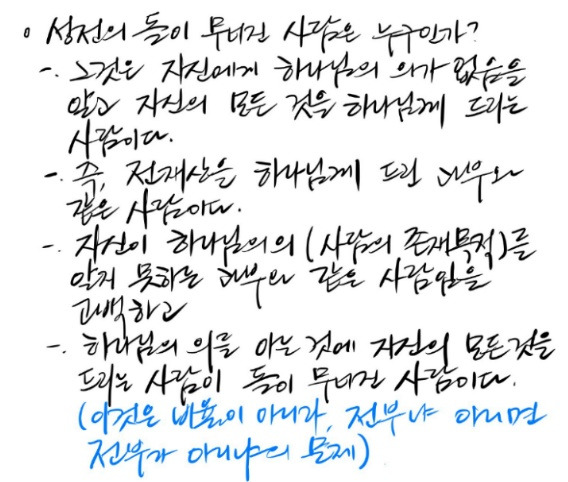 ◦ 성전의 돌이 무너진 사람은 누구인가?
-. 그것은 자신에게 하나님의 의가 없음을
알고 자신의 모든 것을 하나님께 드리는
사람이다.
-. 즉, 전재산을 하나님께 드린 과부와
같은 사람이다.
-. 자신이 하나님의 의 (사람의 존재목적)를
알지 못하는 과부와 같은 사람임을
고백하고
-. 하나님의 의를 아는 것에 자신의 모든 것을
드리는 사람이 돌이 무너진 사람이다.
(이것은 비율이 아니라, 전부냐 아니면
전부가 아니냐의 문제)